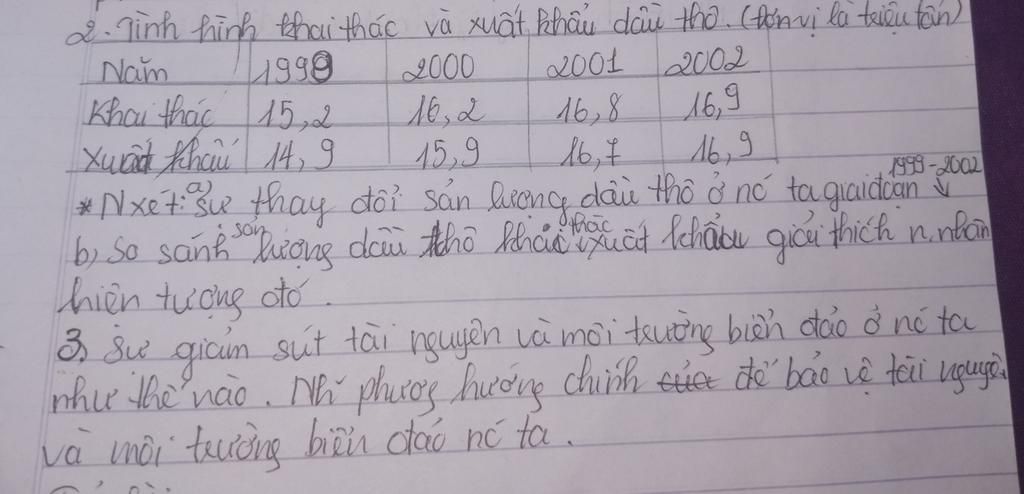 2. Tình hình khai thác và xuất khẩu dầu thô. (Đơn vị là triệu tấn)
Năm 1999 2000 2001 2002
Khai thác 15,2 16,2 16,8 16,9
Xuất khẩu 14,9 15,9 16,7 16,9
* Nxét: a) Sự thay đổi sản lượng dầu thô ở nc ta giai đoạn 1999-2002
b, So sánh sản lượng dầu thô khai thác, xuất khẩu giải thích n.nhân
hiện tượng đó.
3, Sự giảm sút tài nguyên và môi trường biển đảo ở nc ta
như thế nào. Nh~ phương hướng chính để bảo vệ tài nguyên
và môi trường biển đảo nc ta.